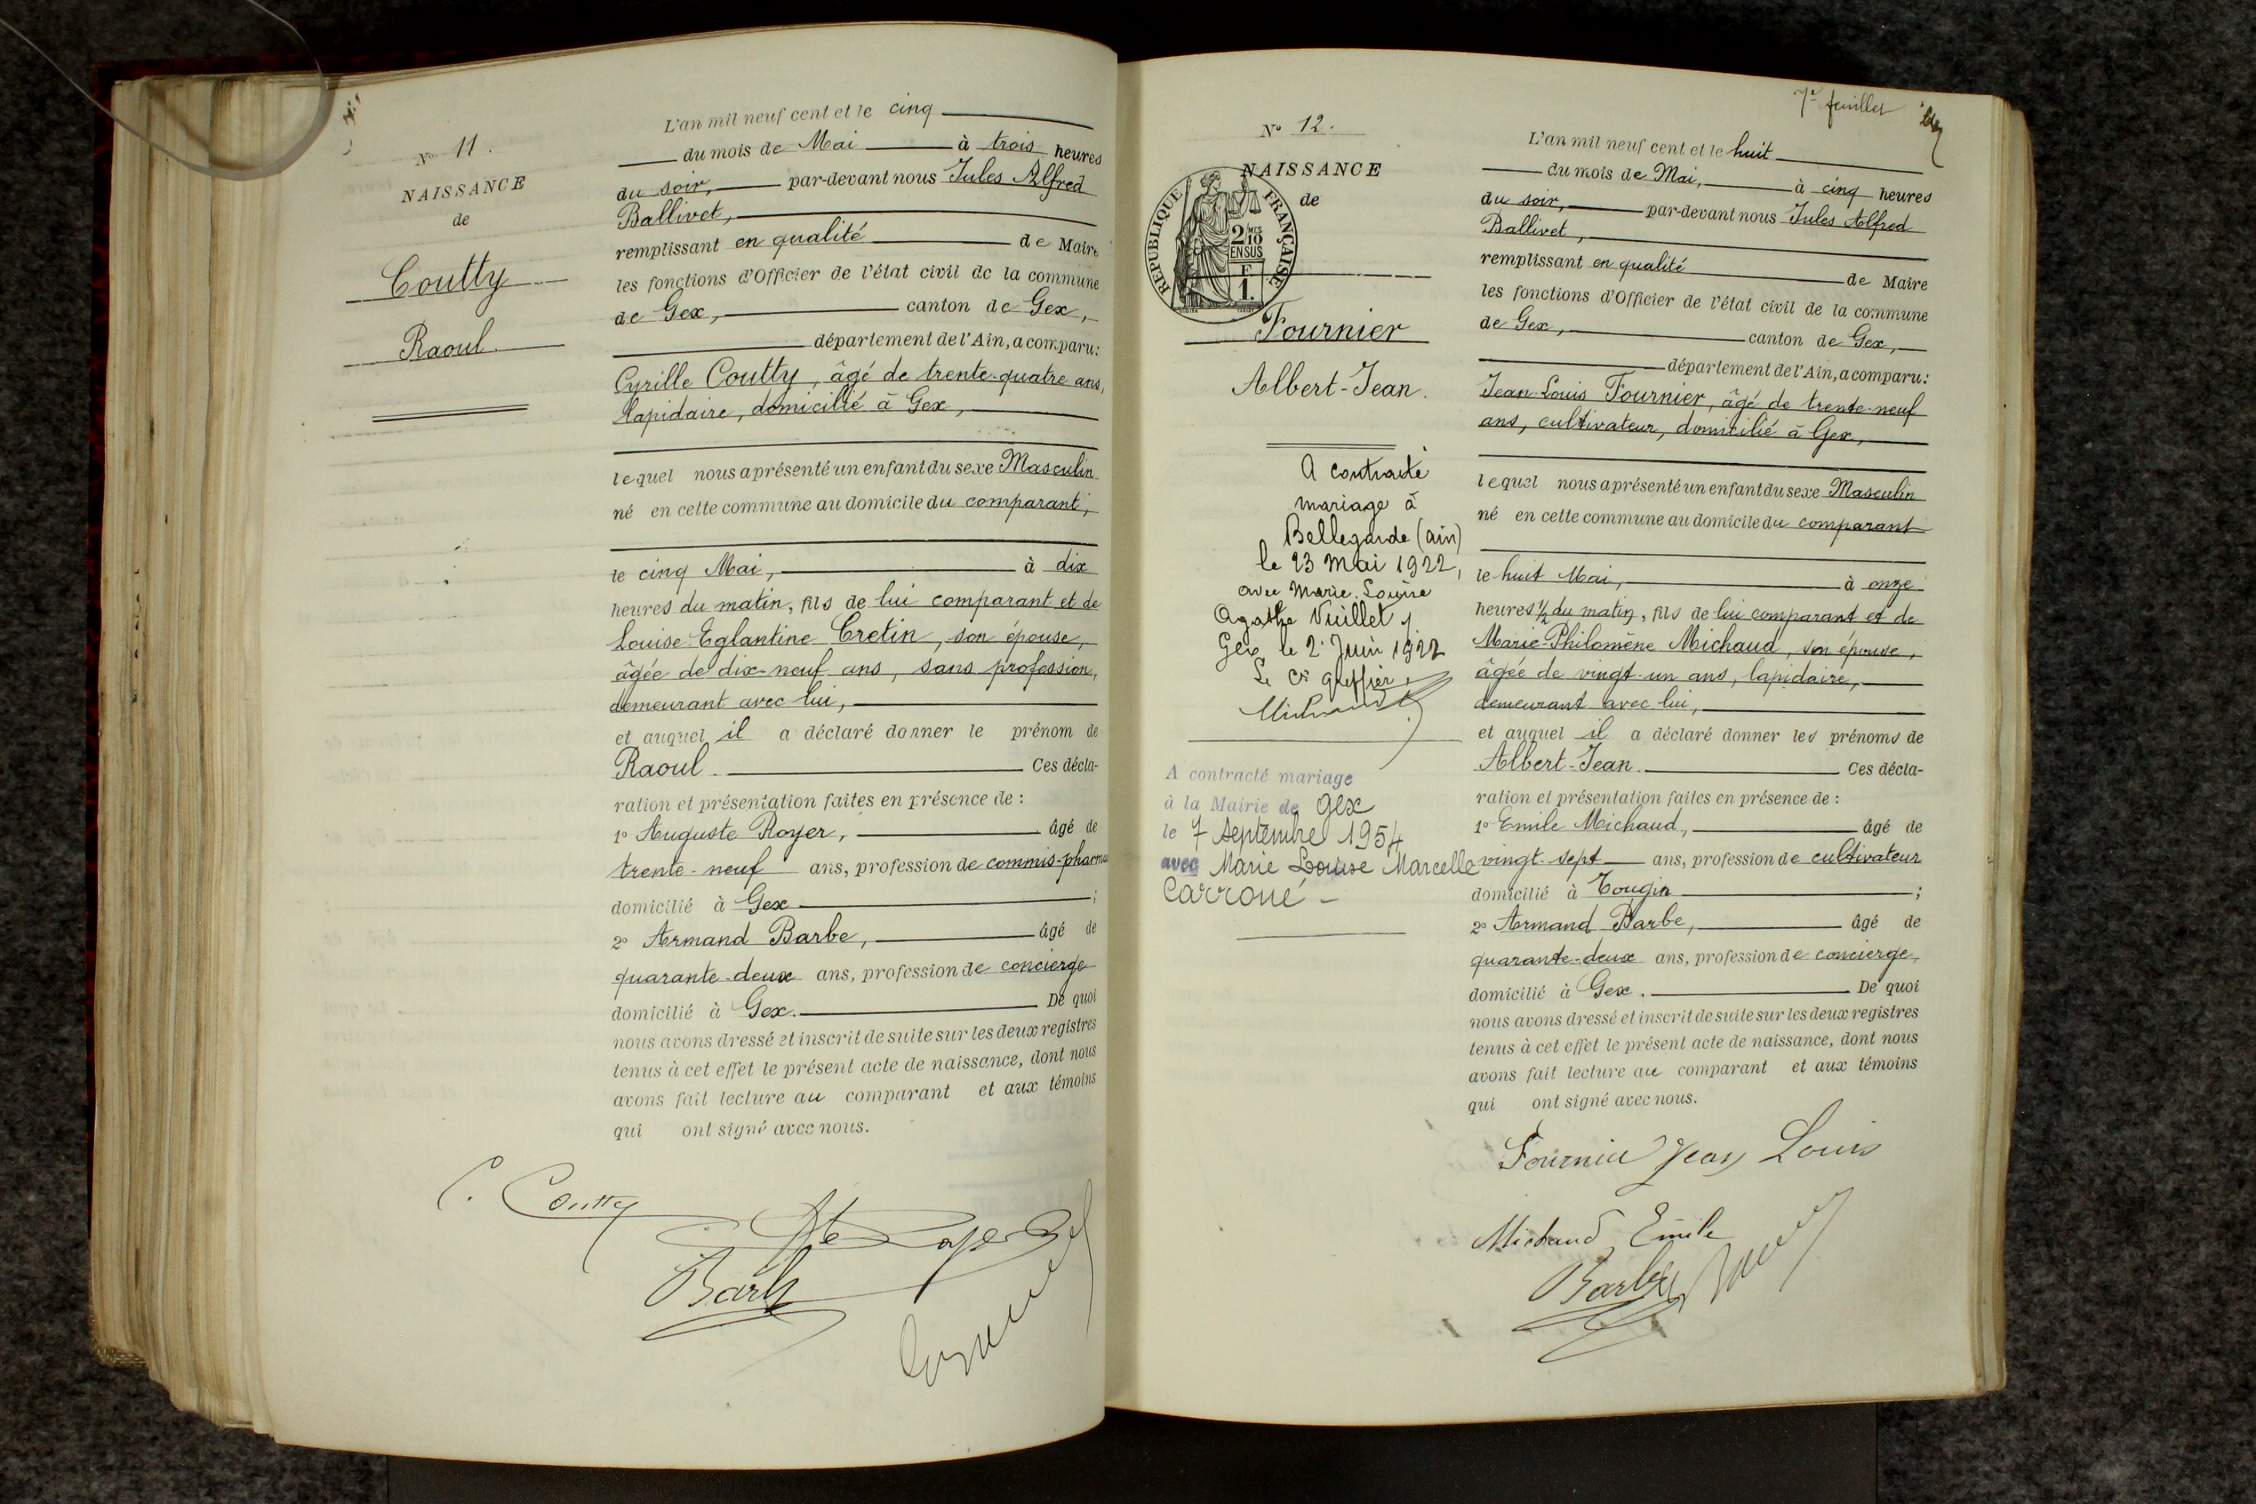 N° 11.
NAISSANCE
de
Coutty
Raoul.
L'an mil neuf cent et le cinq
du mois de Mai à trois heures
du soir, par-devant nous Jules Alfred
Ballivet,
remplissant en qualité de Maire
les fonctions d'Officier de l'état civil de la commune
de Gex, canton de Gex,
département de l'Ain, a comparu:
Cyrille Coutty, âgé de trente-quatre ans,
lapidaire, domicilié à Gex,
lequel nous a présenté un enfant du sexe Masculin
né en cette commune au domicile du comparant,
le cinq Mai, à dix
heures du matin, fils de lui comparant et de
Louise-Eglantine Cretin, son épouse,
âgée de dix-neuf ans, sans profession,
demeurant avec lui,
et auquel il a déclaré donner le prénom de
Raoul. Ces décla-
ration et présentation faites en présence de :
1° Auguste Royer, âgé de
trente-neuf ans, profession de commis-pharma
domicilié à Gex ;
2° Armand Barbe, âgé de
quarante-deux ans, profession de concierge
domicilié à Gex. De quoi
nous avons dressé et inscrit de suite sur les deux registres
tenus à cet effet le présent acte de naissance, dont nous
avons fait lecture au comparant et aux témoins
qui ont signé avec nous.
C. Coutty
Ate Royer
Barbe
7e feuillet
N° 12.
NAISSANCE
de
RÉPUBLIQUE FRANÇAISE
2/10 MES
EN SUS
F.
1.
Fournier
Albert-Jean.
A contracté
mariage à
Bellegarde (ain)
le 23 Mai 1922,
avec Marie-Louise
Agathe Vuillet
Gex, le 2 Juin 1922
Le Cs Greffier,
A contracté mariage
à la Mairie de Gex
le 7 septembre 1954
avec Marie Louise Marcelle
Carroué -
L'an mil neuf cent et le huit
du mois de Mai, à cinq heures
du soir, par-devant nous Jules Alfred
Ballivet,
remplissant en qualité de Maire
les fonctions d'Officier de l'état civil de la commune
de Gex, canton de Gex,
département de l'Ain, a comparu:
Jean-Louis Fournier, âgé de trente-neuf
ans, cultivateur, domicilié à Gex,
lequel nous a présenté un enfant du sexe Masculin
né en cette commune au domicile du comparant
le huit Mai, à onze
heures ½ du matin, fils de lui comparant et de
Marie-Philomène Michaud, son épouse,
âgée de vingt-un ans, lapidaire,
demeurant avec lui,
et auquel il a déclaré donner les prénoms de
Albert-Jean. Ces décla-
ration et présentation faites en présence de :
1° Emile Michaud, âgé de
vingt-sept ans, profession de cultivateur
domicilié à Tougin ;
2° Armand Barbe, âgé de
quarante-deux ans, profession de concierge,
domicilié à Gex. De quoi
nous avons dressé et inscrit de suite sur les deux registres
tenus à cet effet le présent acte de naissance, dont nous
avons fait lecture au comparant et aux témoins
qui ont signé avec nous.
Fournier Jean Louis
Michaud Emile
Barbe